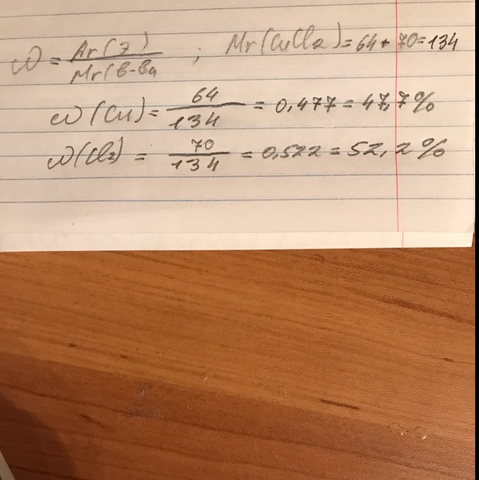 ω = Ar(Э) / Mr(в-ва ; Mr(CuCl2) = 64 + 70 = 134
ω(Cu) = 64 / 134 = 0,477 = 47,7%
ω(Cl2) = 70 / 134 = 0,522 = 52,2%